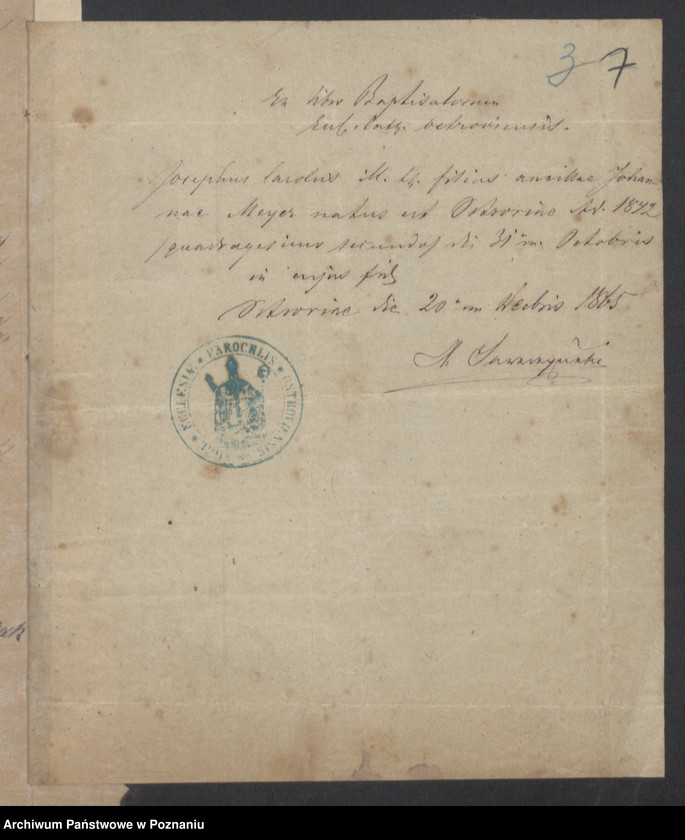 3 7
Ex libro Baptisatorum
Eccl. cath. Ostroviensis.
Josephus Carolus ill. filius ancillae Johan
nae Meyer natus est Ostroviae Ad. 1842
/quadragesimo secundo/ die 31 m. Octobris
in cujus fid
Ostroviae die 20 m. 1865
SIGIL. ECCLESIAE PAROCHLIS OSTROVIENSIS
Archiwum Państwowe w Poznaniu